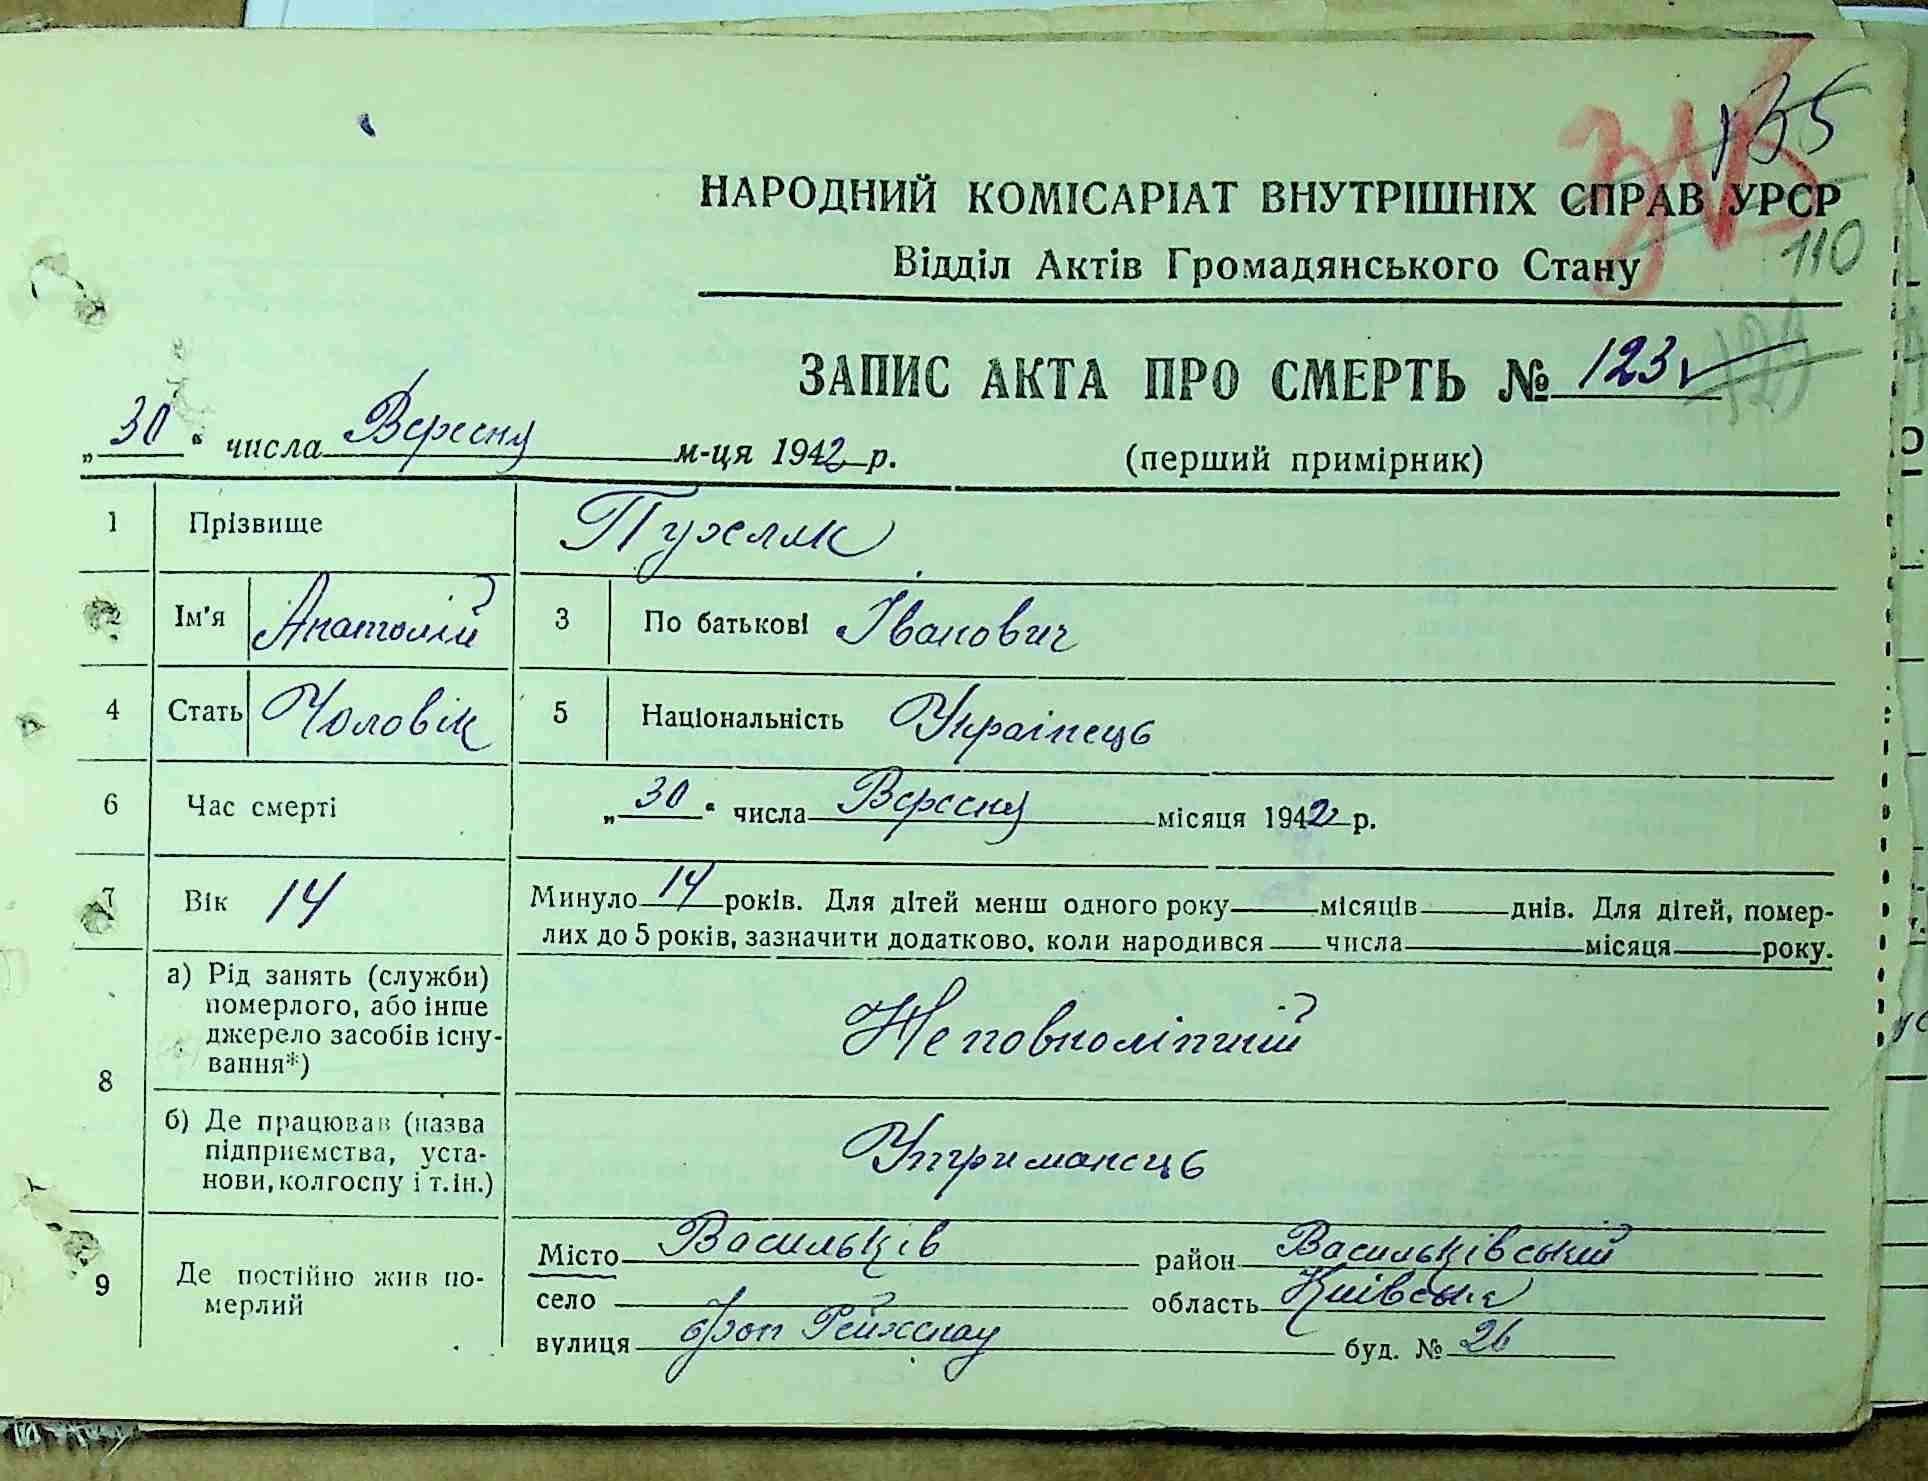 135
НАРОДНИЙ КОМІСАРІАТ ВНУТРІШНІХ СПРАВ УРСР
110
Відділ Актів Громадянського Стану
ЗАПИС АКТА ПРО СМЕРТЬ № 123
„30“ числа Вересня м-ця 1942 р. (перший примірник)
1 Прізвище Пухляк
2 Ім'я Анатолій 3 По батькові Іванович
4 Стать Чоловік 5 Національність Українець
6 Час смерті „30“ числа Вересня місяця 1942 р.
7 Вік 14 Минуло 14 років. Для дітей менш одного року місяців днів. Для дітей, помер-
лих до 5 років, зазначити додатково, коли народився числа місяця року.
8 а) Рід занять (служби)
померлого, або інше
джерело засобів існу-
вання*)
Неповнолітній
б) Де працював (назва
підприємства, уста-
нови, колгоспу і т.ін.)
Утриманець
9 Де постійно жив по-
мерлий
Місто Васильків район Васильківський
село область Київська
вулиця фон Рейхенау буд. № 26